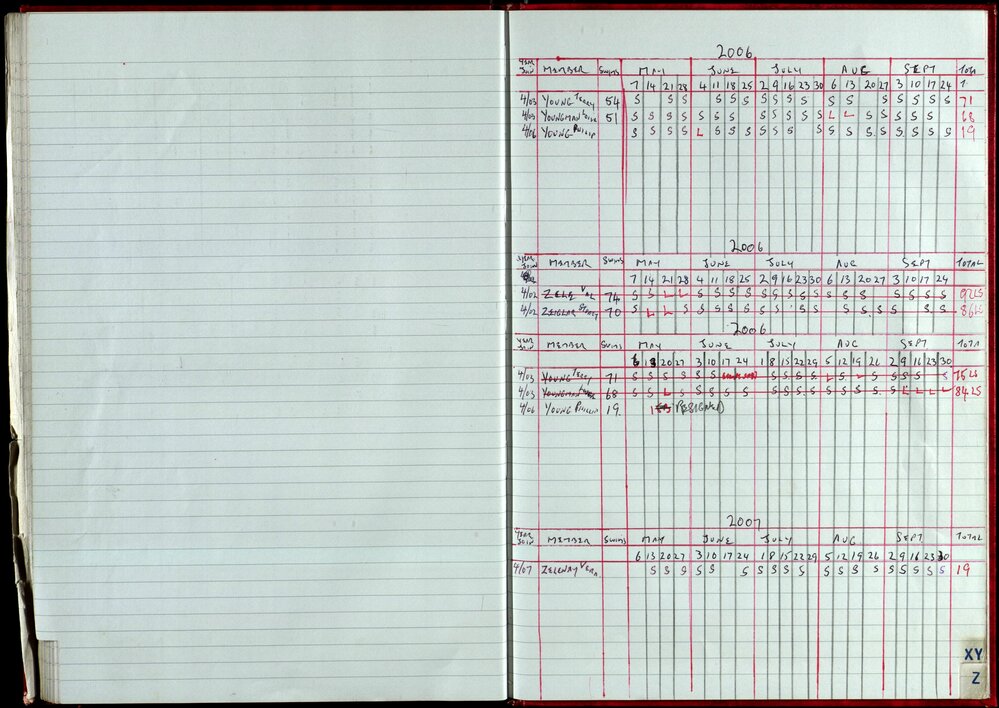 2006
YEAR JOIN MEMBER SWIMS MAY JUNE JULY AUG SEPT TOTA
7 14 21 28 4 11 18 25 2 9 16 23 30 6 13 20 27 3 10 17 24
4/03 YOUNG TERRY 54 S S S S S S S S S S S S S S S S S 71
4/03 YOUNGMAN 51 S S S S S S S S S S S S L L S S S S S 68
4/06 YOUNG PHILIP S S S S L S S S S S S S S S S S S S S S 19
2006
YEAR JOIN MEMBER SWIMS MAY JUNE JULY AUG SEPT TOTAL
7 14 21 28 4 11 18 25 2 9 16 23 30 6 13 20 27 3 10 17 24
4/02 VAL 74 S S L L S S S S S S S S S S S S S S S S
4/02 ZEIGLER 70 S L L S S S S S S S S S S S S S S S
2006
YEAR JOIN MEMBER SWIMS MAY JUNE JULY AUG SEPT TOTA
6 13 20 27 3 10 17 24 1 8 15 22 29 5 12 19 26 2 9 16 23 30
4/03 YOUNG TERRY 71 S S S S S S S S S S S L S L S S S S S S
4/03 YOUNGMAN 68 S S L S S S S S S S S S S S S S S S L L L L
4/06 YOUNG PHILLIP 19. RESIGNED
2007
YEAR JOIN MEMBER SWIMS MAY JUNE JULY AUG SEPT TOTAL
6 13 20 27 3 10 17 24 1 8 15 22 29 5 12 19 26 2 9 16 23 30
4/07 ZELENAY VERA S S S S S S S S S S S S S S S S S S S 19
XY
Z